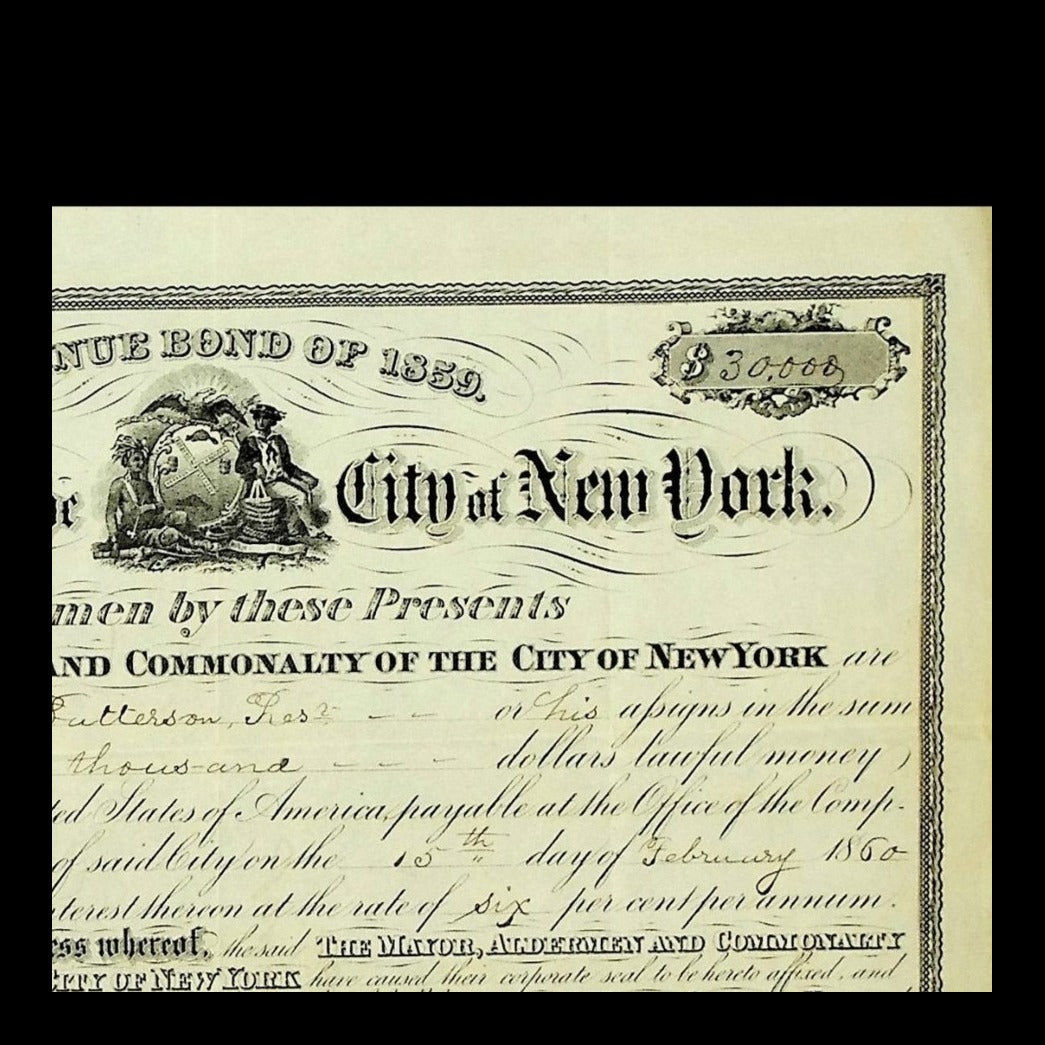 NUE BOND OF 1859.
$ 30,000
City of New York.
men by these Presents
AND COMMONALTY OF THE CITY OF NEW YORK are
Patterson, Pres.t or his assigns in the sum
thousand dollars lawful money
ted States of America, payable at the Office of the Comp-
of said City on the 15th day of February 1860
terest thereon at the rate of six per cent per annum.
ess whereof, the said THE MAYOR, ALDERMEN AND COMMONALTY
CITY OF NEW YORK have caused their corporate seal to be hereto affixed, and